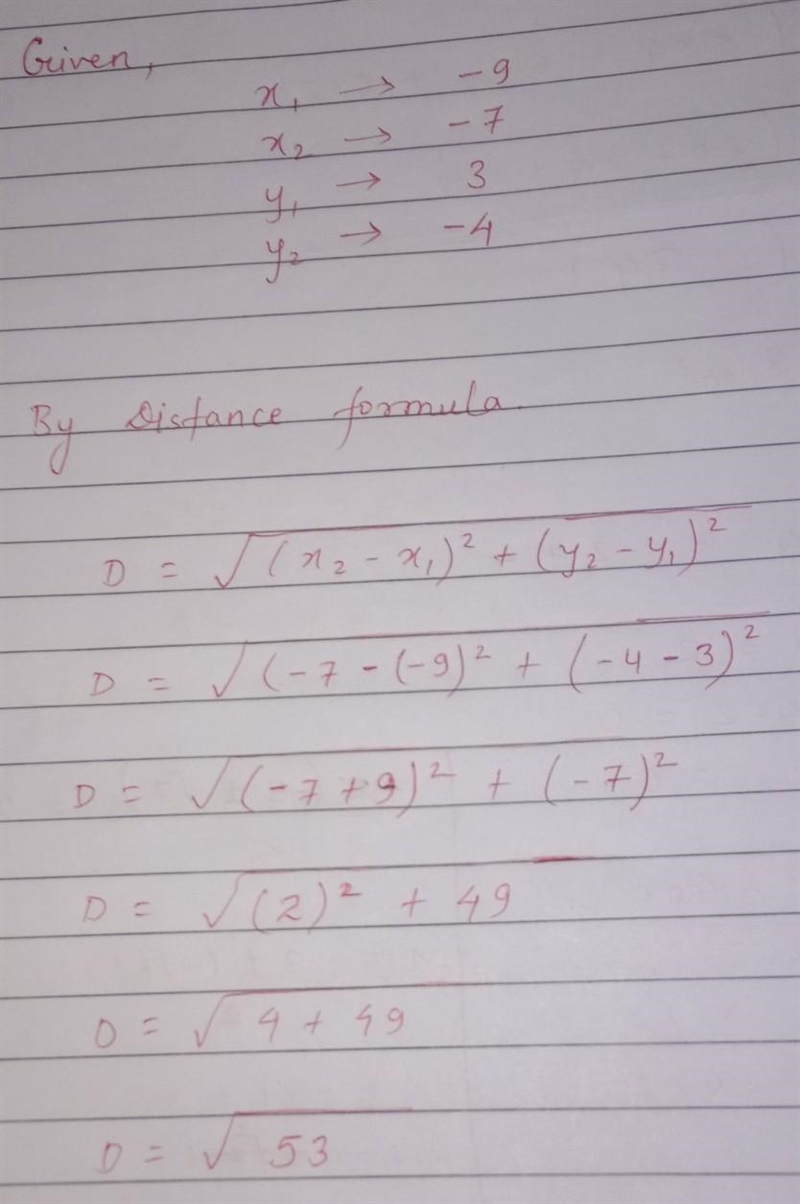 Given,
x₁ → -9
x₂ → -7
y₁ → 3
y₂ → -4
By Distance formula
D = √(x₂ - x₁)² + (y₂ - y₁)²
D = √(-7 - (-9)² + (-4 - 3)²
D = √(-7 + 9)² + (-7)²
D = √(2)² + 49
D = √4 + 49
D = √53